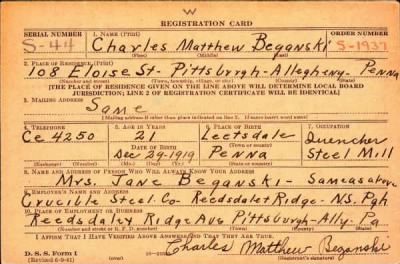 W
REGISTRATION CARD
SERIAL NUMBER 1. NAME (Print) ORDER NUMBER
S-44 Charles Matthew Beganski S-1937
(First) (Middle) (Last)
2. PLACE OF RESIDENCE (Print)
108 Eloise St- Pittsburgh- Allegheny- Penna
(Number and street) (Town, township, village, or city) (County) (State)
[THE PLACE OF RESIDENCE GIVEN ON THE LINE ABOVE WILL DETERMINE LOCAL BOARD
JURISDICTION; LINE 2 OF REGISTRATION CERTIFICATE WILL BE IDENTICAL]
3. MAILING ADDRESS
Same
[Mailing address if other than place indicated on line 2. If same insert word same]
4. TELEPHONE 5. AGE IN YEARS 6. PLACE OF BIRTH 7. OCCUPATION
Ce 4250 21 Leetsdale Quencher
DATE OF BIRTH
Dec 29-1919 Penna Steel Mill
(Exchange) (Number) (Mo.) (Day) (Yr.) (State or country)
8. NAME AND ADDRESS OF PERSON WHO WILL ALWAYS KNOW YOUR ADDRESS
Mrs. Jane Beganski- Same as above
9. EMPLOYER'S NAME AND ADDRESS
Crucible Steel Co- Reedsdale + Ridge- NS. Pgh
10. PLACE OF EMPLOYMENT OR BUSINESS
Reedsdale + Ridge Ave Pittsburgh- Ally- Pa
(Number and street or R. F. D. number) (Town) (County) (State)
I AFFIRM THAT I HAVE VERIFIED ABOVE ANSWERS AND THAT THEY ARE TRUE.
Charles Matthew Beganski
D. S. S. Form 1
(Revised 6-9-41) (Registrant's signature)